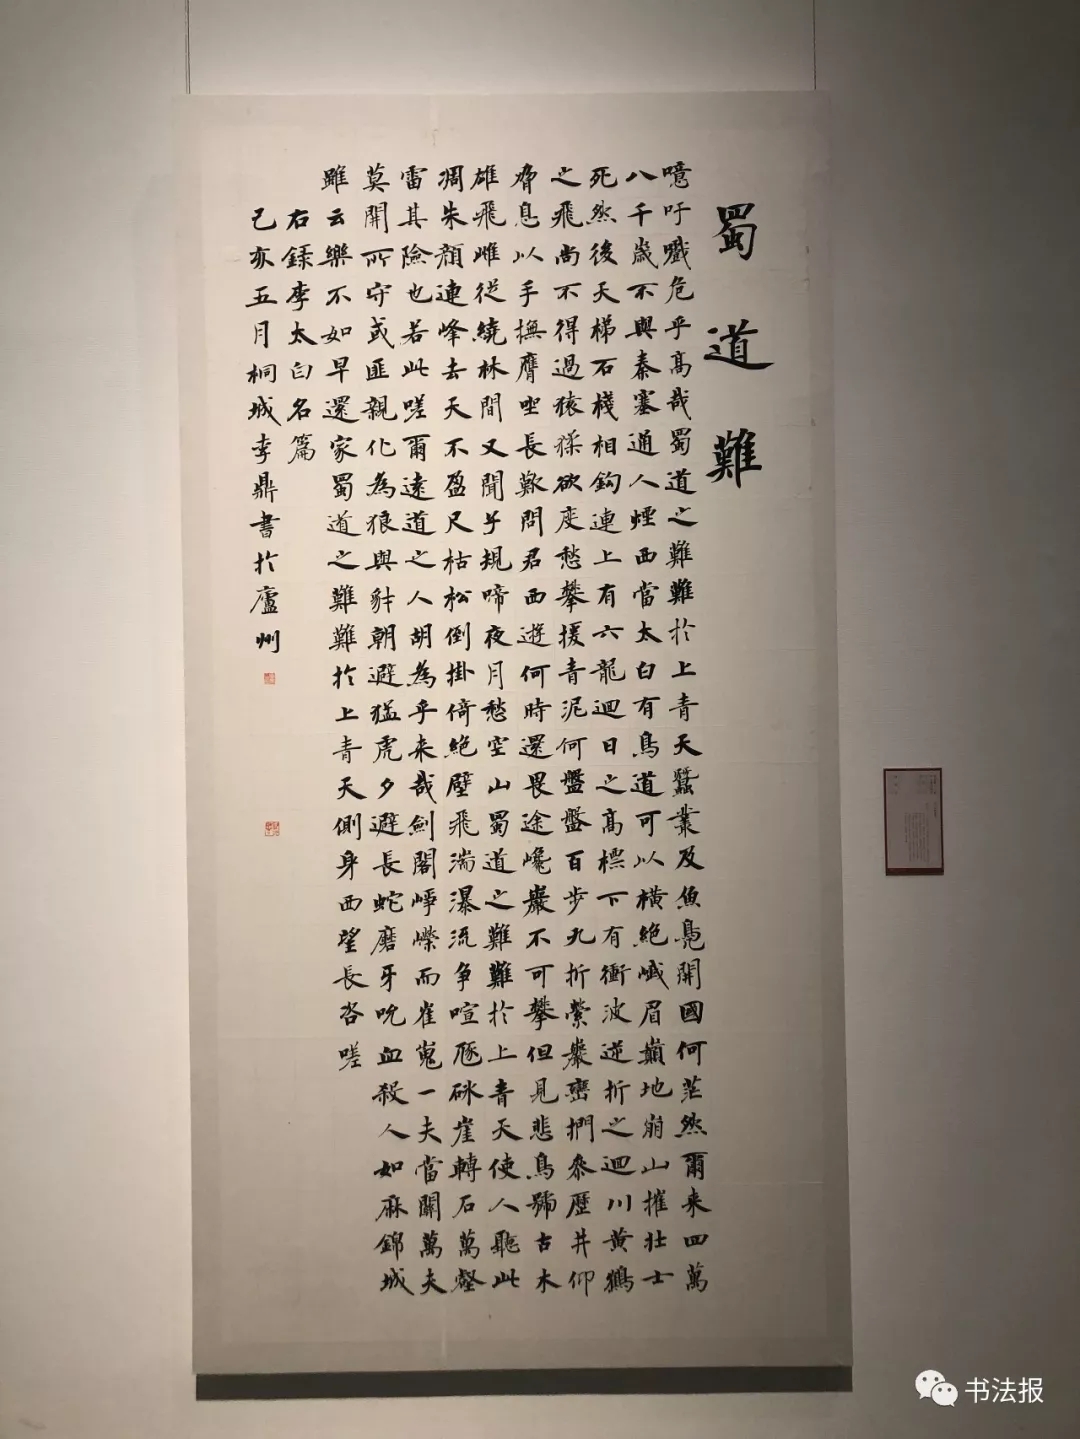 蜀道難
噫吁戲危乎高哉蜀道之難難於上青天蠶叢及魚鳧開國何茫然爾来四萬
八千歲不與秦塞通人煙西當太白有鳥道可以橫絕峨眉巔地崩山摧壯士
死然後天梯石棧相鈎連上有六龍迴日之高標下有衝波逆折之迴川黃鶴
之飛尚不得過猿猱欲度愁攀援青泥何盤盤百步九折縈巖巒捫參歷井仰
脅息以手撫膺坐長歎問君西遊何時還畏途巉巖不可攀但見悲鳥號古木
雄飛雌從繞林間又聞子規啼夜月愁空山蜀道之難難於上青天使人聽此
凋朱顏連峰去天不盈尺枯松倒掛倚絕壁飛湍瀑流爭喧豗砯崖轉石萬壑
雷其險也若此嗟爾遠道之人胡為乎来哉劍閣崢嶸而崔嵬一夫當關萬夫
莫開所守或匪親化為狼與豺朝避猛虎夕避長蛇磨牙吮血殺人如麻錦城
雖云樂不如早還家蜀道之難難於上青天側身西望長咨嗟
右錄李太白名篇
己亥五月桐城李鼎書於廬州
书法报